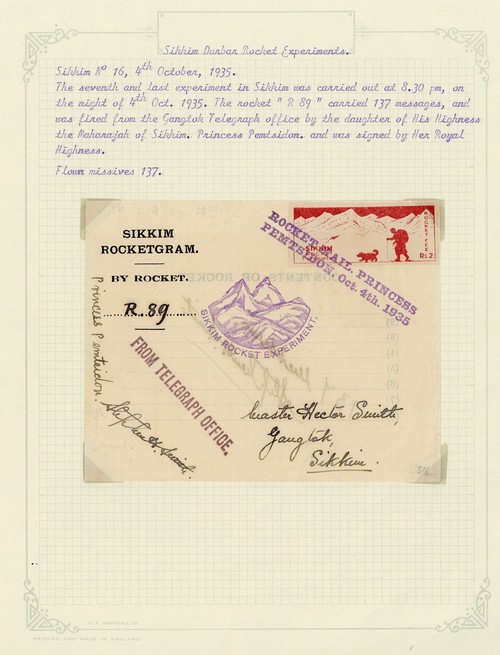 Sikkim Durbar Rocket Experiments.
Sikkim Nº 16, 4th October, 1935.
The seventh and last experiment in Sikkim was carried out at 8.30 pm, on
the night of 4th Oct. 1935. The rocket "R 89" carried 137 messages, and
was fired from the Gangtok Telegraph office by the daughter of His Highness
the Maharajah of Sikkim. Princess Pemtsidon. and was signed by Her Royal
Highness.
Flown missives 137.
SIKKIM
ROCKETGRAM.
BY ROCKET.
R.89
Princess Pemtsidon.
FROM TELEGRAPH OFFICE.
Stephen H. Smith.
SIKKIM ROCKET EXPERIMENT.
ROCKET MAIL. PRINCESS
PEMTSIDON. Oct. 4th. 1935
SIKKIM
ROCKET FEE
Rs.2
Master Hector Smith,
Gangtok,
Sikkim.
PRINTED AND MADE IN ENGLAND